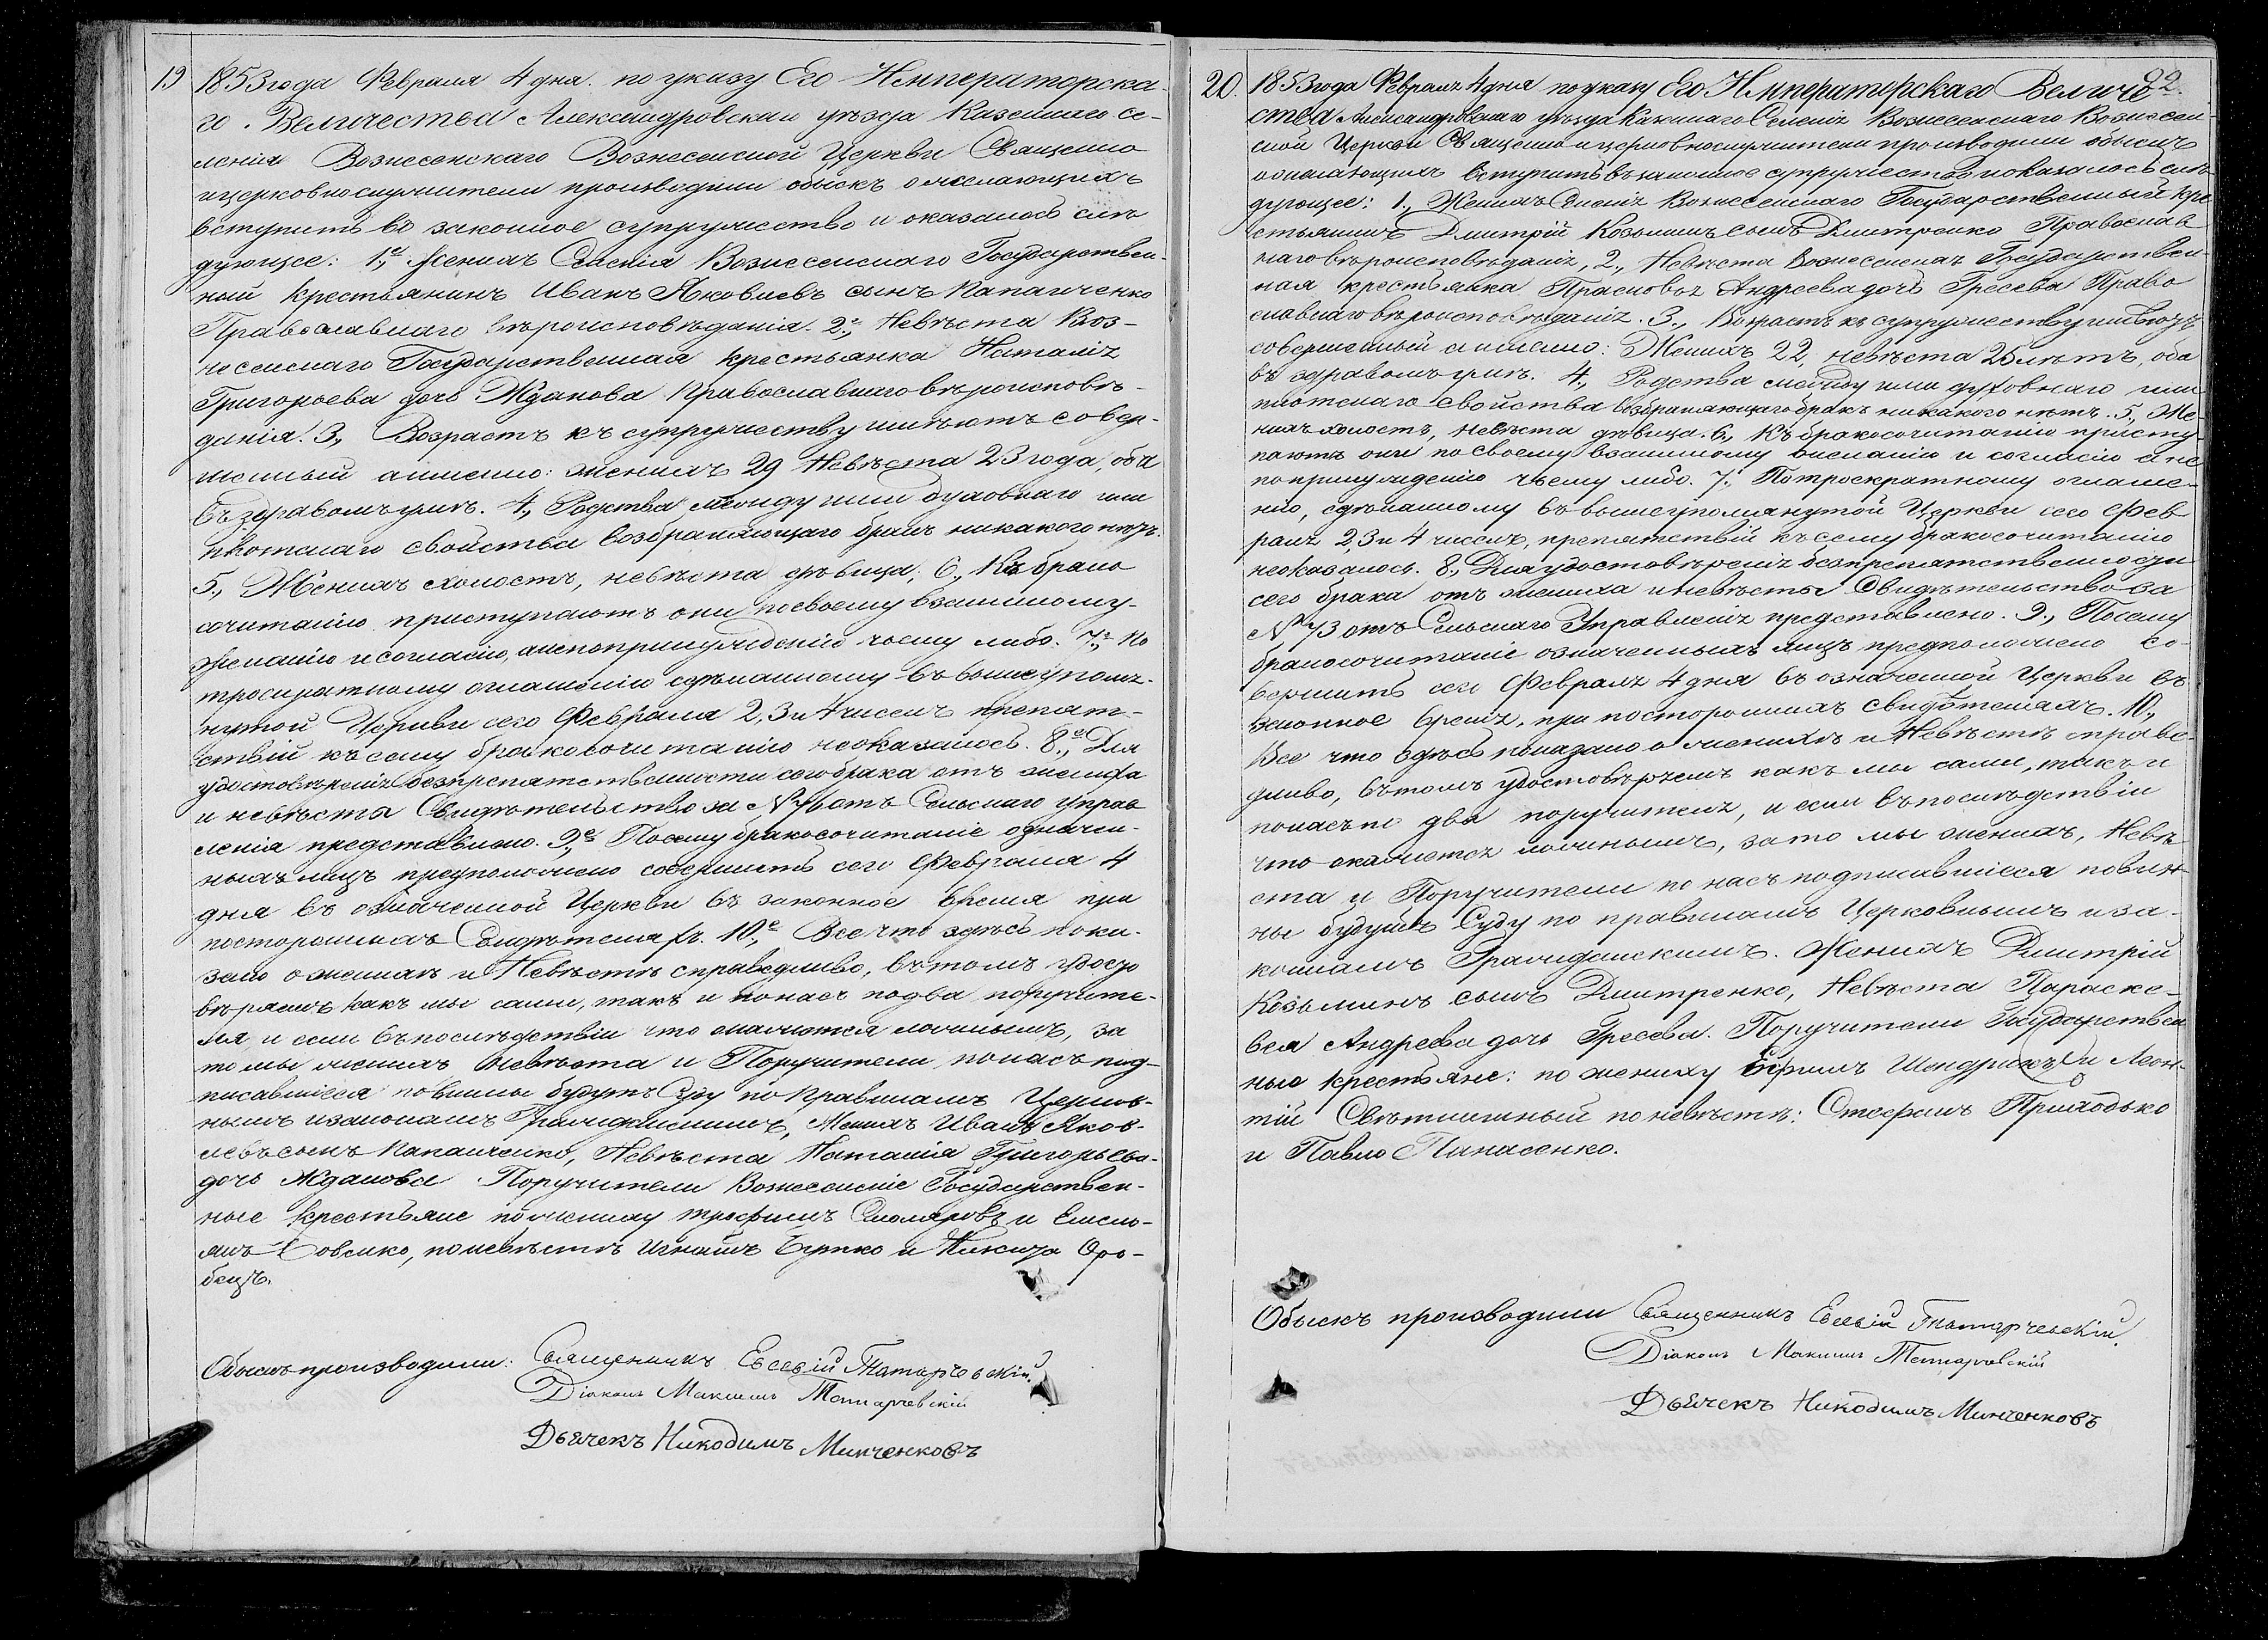 19
1853 года Февраля 4 дня. по указу Его Императорска-
го Величества Александровскаго уѣзда Казеннаго се-
ленія Вознесенскаго Вознесенской Церкви Священно
и церковнослужители производили обыскъ о желающихъ
вступить въ законное супружество и оказалось слѣ
дующее: 1.е Женихъ Селенія Вознесенскаго Государствен-
ный крестьянинъ Иванъ Яковлевъ сынъ Капанченко
Православнаго вѣроисповѣданія. 2.е Невѣста Воз-
несенскаго Государственная крестьянка Наталія
Григорьева дочь Жданова Православнаго вѣроисповѣ-
данія. 3., Возрастъ къ супружеству имѣютъ совер-
шенный а именно: женихъ 29 Невѣста 23 года, оба
въ здравомъ умѣ. 4., Родства между ими духовнаго или
плотскаго свойства возбраняющаго бракъ никакого нѣтъ.
5., Женихъ холостъ, невѣста дѣвица; 6., Къ брако
сочитанію приступаютъ они по своему взаимному
желанію и согласію, а не по принужденію чьему либо. 7.е По
троекратному оглашенію сдѣланному въ вышеупомя-
нутой Церкви сего Февраля 2, 3 и 4 чиселъ препят-
ствій къ сему бракосочитанію не оказалось. 8.е Для
удостовѣренія безпрепятственности сего брака отъ жениха
и невѣста Свидѣтельство за № отъ Сельскаго управ
ленія представлено. 9.е Посему бракосочитаніе означен-
ныхъ лицъ предположено совершить сего Февраля 4
дня въ означенной Церкви въ законное время при
постороннихъ Свидѣтеляхъ. 10.е Все что здѣсь пока-
зано о женихѣ и Невѣстѣ справедливо, въ томъ удосто
вѣряемъ какъ мы сами, такъ и по насъ по два поручите-
ля, и если въ послѣдствіи что окажется ложнымъ, за
то мы женихъ Невѣста и Поручители по насъ под-
писавшіеся повинны будутъ Суду по Правиламъ Церков-
нымъ и законамъ Гражданскимъ, Женихъ Иванъ Яков-
левъ сынъ Капанченко, Невѣста Наталія Григорьева
дочь Жданова Поручители Вознесенскіе Государствен-
ные крестьяне по жениху Трофимъ Столяровъ и Емель-
янъ Совенко, по невѣстѣ Игнатъ Бутко и Никита Оро-
бецъ.
Обыскъ производили: Священникъ Евсевій Татарчевскій.
Діаконъ Максимъ Татарчевскій
Дьячекъ Никодимъ Минченковъ
22.
20.
1853 года Февраля 4 дня по указу Его Императорскаго Величе
ства Александровскаго уѣзда Казеннаго Селенія Вознесенскаго Вознесен-
ской Церкви Священно и церковнослужители производили обыскъ
о желающихъ вступить въ законное супружество и оказалось слѣ-
дующее: 1., Женихъ Селенія Вознесенскаго Государственный кре
стьянинъ Дмитрій Козьминъ сынъ Дмитренко Православ
наго вѣроисповѣданія, 2., Невѣста Вознесенская Государствен-
ная крестьянка Парасковья Андреева дочь Гресева Право
славнаго вѣроисповѣданія. 3., Возрастъ къ супружеству имѣютъ
совершенный а именно: Женихъ 22, невѣста 25 лѣтъ, оба
въ здравомъ умѣ. 4., Родства между ими духовнаго или
плотскаго свойства возбраняющаго бракъ никакого нѣтъ. 5., Же-
нихъ холостъ, невѣста дѣвица. 6., Къ бракосочитанію присту
паютъ они по своему взаимному желанію и согласію а не
по принужденію чьему либо. 7., По троекратному оглаше-
нію, сдѣланному въ вышеупомянутой Церкви сего Фев
раля 2, 3 и 4 чиселъ, препятствій къ сему бракосочитанію
не оказалось. 8., Для удостовѣренія безпрепятственности
сего брака отъ жениха и невѣсты Свидѣтельство за
№ 73 отъ Сельскаго Управленія представлено. 9., Посему
бракосочитаніе означенныхъ лицъ предположено со-
вершить сего Февраля 4 дня въ означенной Церкви въ
законное время, при постороннихъ свидѣтеляхъ. 10.,
Все что здѣсь показано о женихѣ и Невѣстѣ справе
дливо, въ томъ удостовѣряемъ какъ мы сами, такъ и
по насъ по два поручителя, и если въ послѣдствіи
что окажется ложнымъ, за то мы женихъ, Невѣ
ста и Поручители по насъ подписавшіеся повин-
ны будутъ Суду по правиламъ Церковнымъ и за-
конамъ Гражданскимъ. Женихъ Дмитрій
Козьминъ сынъ Дмитренко, Невѣста Параске-
вея Андреева дочь Гресева. Поручители Государствен
ные крестьяне: по жениху Ефимъ Шендрикъ и Леон-
тій Свѣтличный по невѣстѣ: Стефанъ Приходько
и Павло Панасенко.
Обыскъ производили Священникъ Евсевій Татарчевскій.
Діаконъ Максимъ Татарчевскій
Дьячекъ Никодимъ Минченковъ